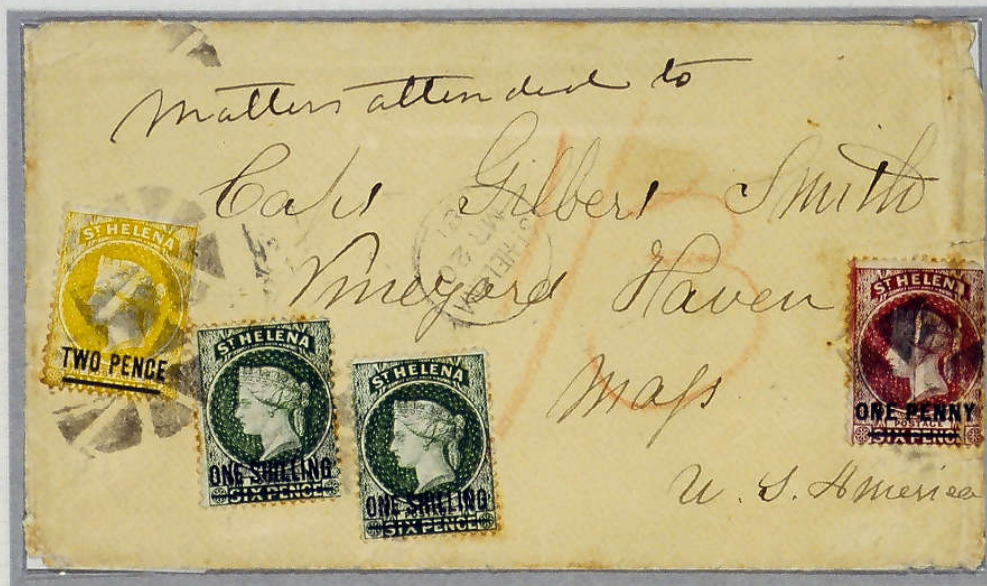 Matters attended to
Capt Gilbert Smith
Vineyard Haven
Mass
U. S. America
1/3
ST HELENA
MR 20
ST HELENA
TWO PENCE
ST HELENA
ONE SHILLING
SIX PENCE
ST HELENA
ONE SHILLING
SIX PENCE
ST HELENA
ONE PENNY
POSTAGE
SIX PENCE